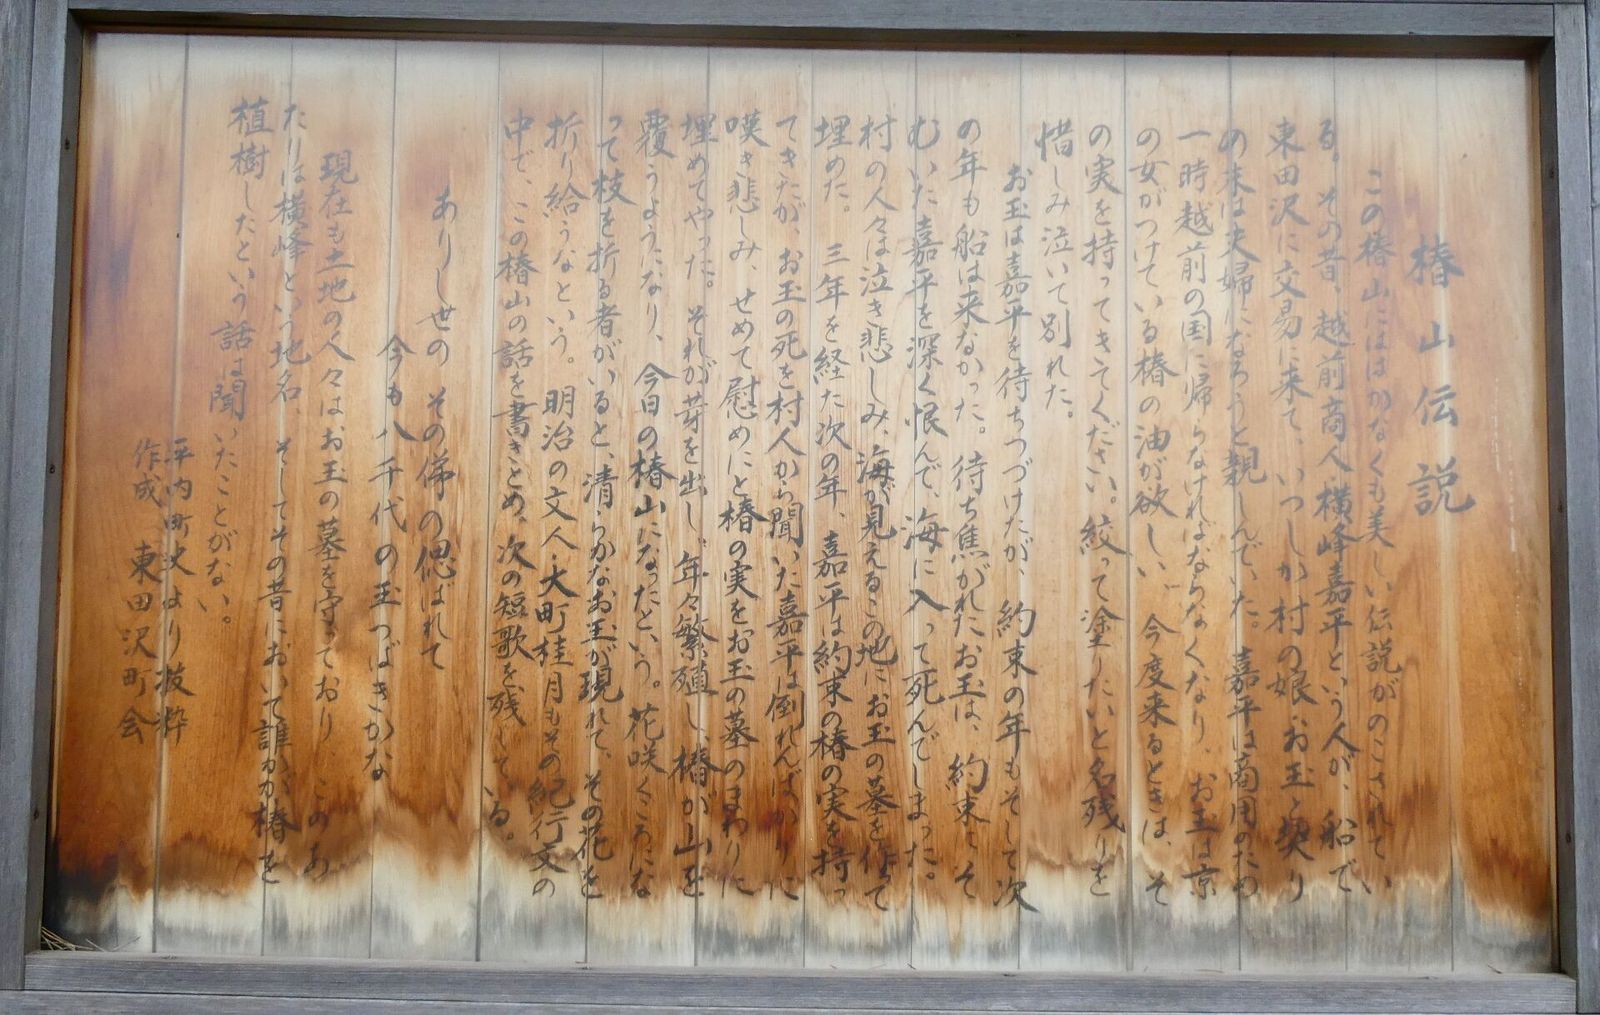 椿山伝説
この椿山にははかなくも美しい伝説がのこされてい
る。その昔、越前商人・横峰嘉平という人が、船で
東田沢に交易に来て、いつしか村の娘・お玉と契り
の末は夫婦になろうと親しんでいた。嘉平は商用のため
一時越前の国に帰らなければならなくなり、お玉は京
の女がつけている椿の油が欲しい、今度来るときは、そ
の実を持ってきてください。絞って塗りたいと名残りを
惜しみ泣いて別れた。
お玉は嘉平を待ちつづけたが、約束の年もそして次
の年も船は来なかった。待ち焦がれたお玉は、約束にそ
むいた嘉平を深く恨んで、海に入って死んでしまった。
村の人々は泣き悲しみ、海が見えるこの地にお玉の墓を作って
埋めた。三年を経た次の年、嘉平は約束の椿の実を持っ
てきたが、お玉の死を村人から聞いた嘉平は倒れんばかりに
嘆き悲しみ、せめて慰めにと椿の実をお玉の墓のまわりに
埋めてやった。それが芽を出し、年々繁殖し、椿が山を
覆うようになり、今日の椿山になったという。花咲くころにな
って枝を折る者がいると、清らかなお玉が現れて、その花を
折り給うなという。明治の文人・大町桂月もその紀行文の
中で、この椿山の話を書きとめ、次の短歌を残している。
ありし世の その俤の偲ばれて
今も八千代の玉つばきかな
現在も土地の人々はお玉の墓を守っており、このあ
たりは横峰という地名、そしてその昔において誰かが椿を
植樹したという話は聞いたことがない。
平内町史より抜粋
作成 東田沢町会